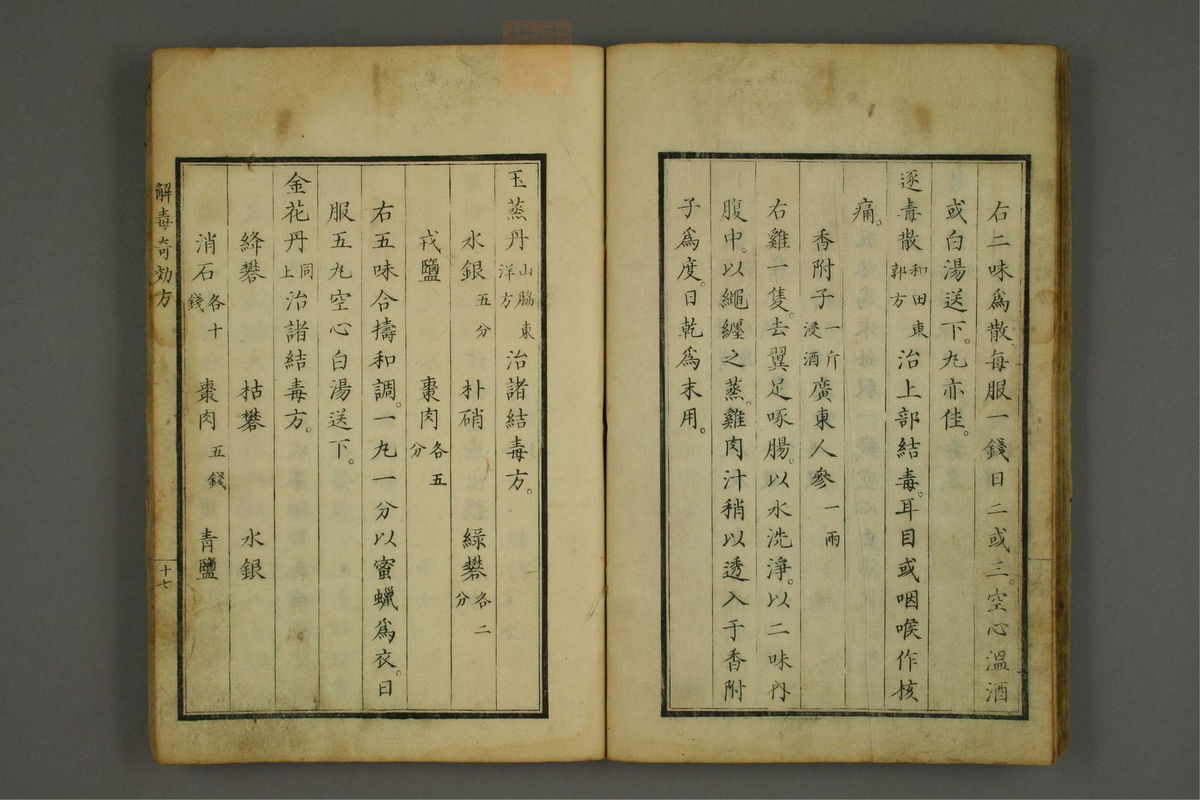 右二味爲散。每服一錢日二或三。空心溫酒
或白湯送下。丸亦佳。
逐毒散 和田東郭方 治上部結毒。耳目或咽喉作核
痛。
香附子 一斤浸酒 廣東人參 一兩
右雞一隻。去翼足啄腸。以水洗淨。以二味內
腹中。以繩纏之蒸。雞肉汁稍以透入于香附
子爲度。日乾爲末用。
玉蒸丹 山脇東洋方 治諸結毒方。
水銀 五分 朴硝 綠礬 各二分
戎鹽 棗肉 各五分
右五味合擣和調。一丸一分以蜜蠟爲衣。日
服五丸空心白湯送下。
金花丹 同上 治諸結毒方。
絳礬 枯礬 水銀
消石 各十錢 棗肉 五錢 青鹽
解毒奇効方
十七